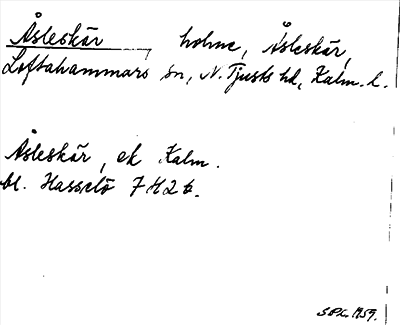 Åsleskär, holme, Åsleskär,
Loftahammars sn, N. Tjusts hd, Kalm. l.
Åsleskär, ek Kalm.
bl. Hasselö 7 H 2 b.
SPL. 1959.